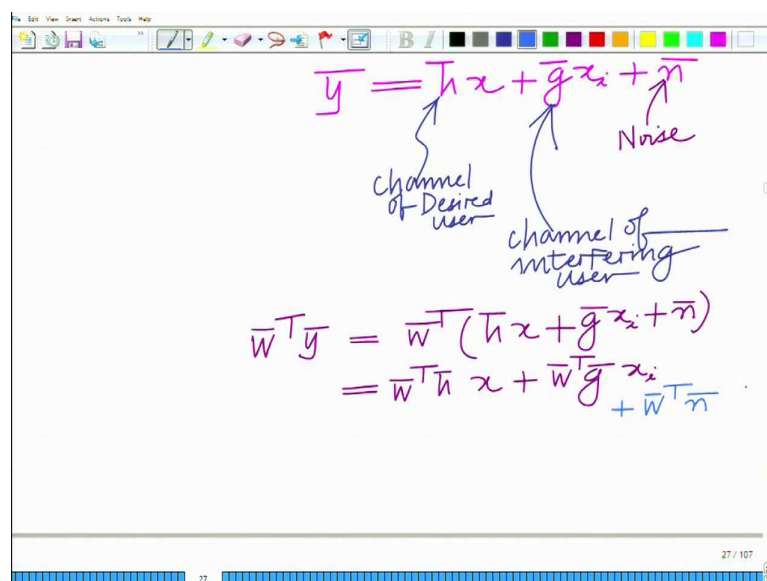 File Edit View Insert Actions Tools Help
B I
ȳ = h̄x + ḡxᵢ + n̄
Noise
channel
of Desired
user
channel of
interfering
user
w̄ᵀȳ = w̄ᵀ(h̄x + ḡxᵢ + n̄)
= w̄ᵀh̄ x + w̄ᵀḡ xᵢ
+ w̄ᵀn̄
27 / 107
27